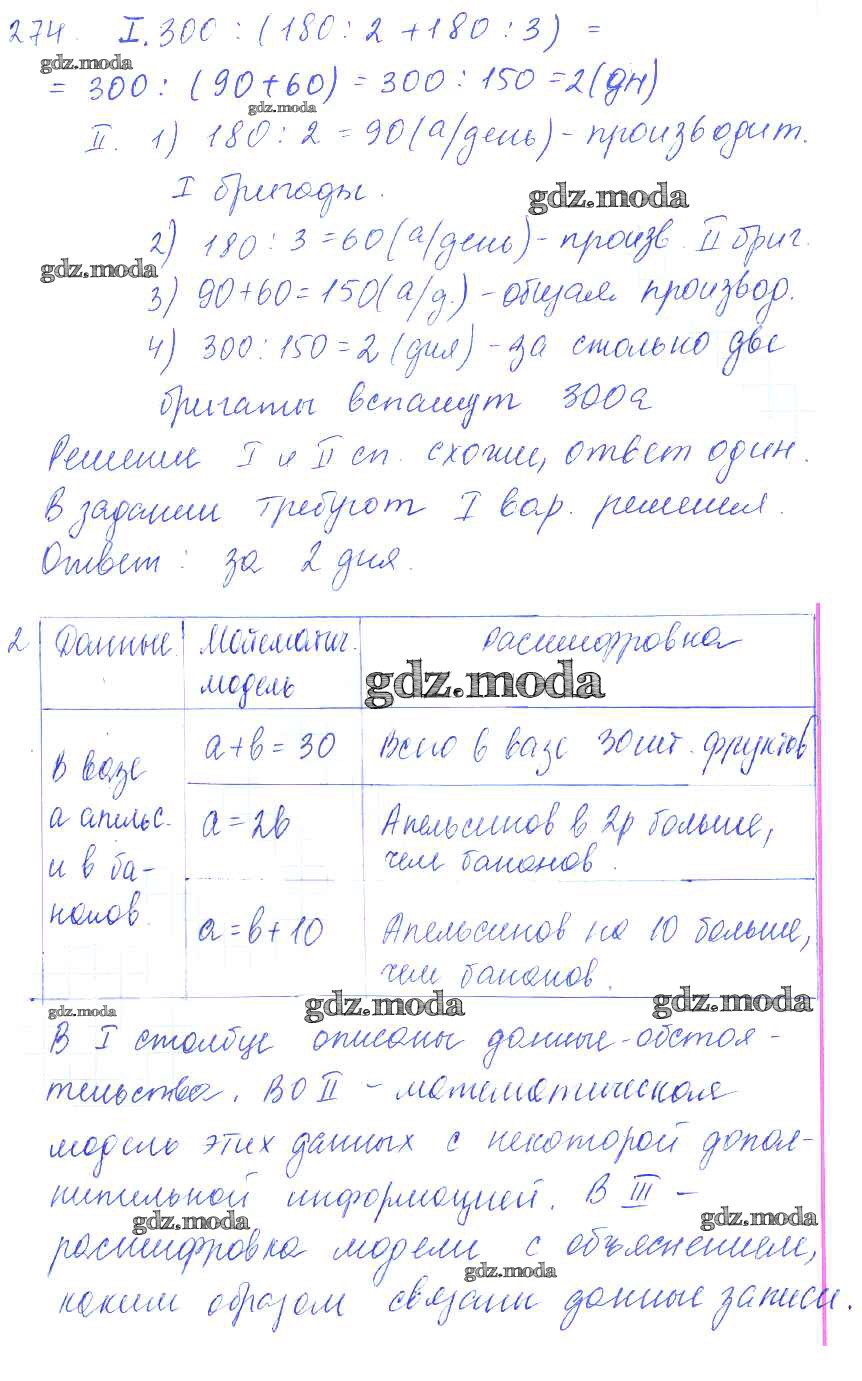 274. I. 300 : (180 : 2 + 180 : 3) =
gdz.moda
= 300 : (90 + 60) = 300 : 150 = 2 (дн)
gdz.moda
II. 1) 180 : 2 = 90 (а/день) - производит.
I бригады.
gdz.moda
2) 180 : 3 = 60 (а/день) - произв. II бриг.
gdz.moda
3) 90 + 60 = 150 (а/д.) - общая производ.
4) 300 : 150 = 2 (дня) - за столько две
бригаты вспашут 300а
Решение I и II сп. схожи, ответ один.
В задании требуют I вар. решения.
Ответ: за 2 дня.
2 Данные Математич. Расшифровка
модель
gdz.moda
В вазе
а апельс.
и в ба-
нанов.
a + b = 30 Всего в вазе 30 шт. фруктов
a = 2b Апельсинов в 2р больше,
чем бананов.
a = b + 10 Апельсинов на 10 больше,
чем бананов.
gdz.moda gdz.moda gdz.moda
В I столбце описаны данные-обстоя-
тельства. Во II - математическая
модель этих данных с некоторой допол-
нительной информацией. В III -
gdz.moda gdz.moda
расшифровка модели с объяснением,
gdz.moda
каким образом связаны данные записи.